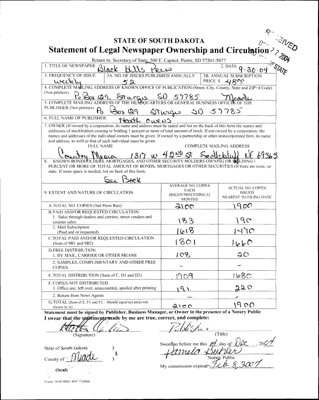 STATE OF SOUTH DAKOTA
Statement of Legal Newspaper Ownership and Circulation
Return to: Secretary of State, 500 E. Capitol, Pierre, SD 57501-5077
RECEIVED
1. TITLE OF NEWSPAPER Black Hills Press
2. DATE 9-30-04
3. FREQUENCY OF ISSUE weekly
3A. NO. OF ISSUES PUBLISHED ANNUALLY 52
3B. ANNUAL SUBSCRIPTION PRICE $ 48
4. COMPLETE MAILING ADDRESS OF KNOWN OFFICE OF PUBLICATION (Street, City, County, State and ZIP+4 Code)
(Not printers) Po Box 129 Sturgis SD 57785 Meade
5. COMPLETE MAILING ADDRESS OF THE HEADQUARTERS OR GENERAL BUSINESS OFFICE OF THE
PUBLISHER (Not printer) Po Box 129 Sturgis SD 57785
6. FULL NAME OF PUBLISHER:
7. OWNER (If owned by a corporation, its name and address must be stated and list on the back of this form the names and
addresses of stockholders owning or holding 1 percent or more of total amount of stock. If not owned by a corporation, the
names and addresses of the individual owners must be given. If owned by a partnership or other unincorporated firm, its name
and address, as well as that of each individual must be given.
FULL NAME COMPLETE MAILING ADDRESS
Country Media NE 69363
8. KNOWN BONDHOLDERS, MORTGAGES, AND OTHER SECURITY HOLDERS OWNING OR HOLDING 1
PERCENT OR MORE OF TOTAL AMOUNT OF BONDS, MORTGAGES OR OTHER SECURITIES (If there are none, so
state. If more space is needed, list on back of this form)
See Back
9. EXTENT AND NATURE OF CIRCULATION
AVERAGE NO. COPIES EACH ISSUED PRECEDING 12 MONTHS
ACTUAL NO. COPIES ISSUED NEAREST TO FILING DATE
A. TOTAL NO. COPIES (Net Press Run) 2100 1900
B. PAID AND/OR REQUESTED CIRCULATION
1. Sales through dealers and carriers, street vendors and
counter sales. 183 190
2. Mail Subscription
(Paid and or requested) 1618 1470
C. TOTAL PAID AND/OR REQUESTED CIRCULATION
(Sum of 9B1 and 9B2) 1801 1660
D. FREE DISTRIBUTION
1. BY MAIL, CARRIER OR OTHER MEANS 108 20
2. SAMPLES, COMPLIMENTARY AND OTHER FREE
COPIES
E. TOTAL DISTRIBUTION (Sum of C, D1 and D2) 1909 1680
F. COPIES NOT DISTRIBUTED
1. Office use, left over, unaccounted, spoiled after printing 191 220
2. Return from News Agents
G. TOTAL (Sum of E, F1 and F2 - Should equal net press run
shown in A) 2100 1900
Statement must be signed by Publisher, Business Manager, or Owner in the presence of a Notary Public
I swear that the statements made by me are true, correct, and complete:
Publisher
(Signature) (Title)
State of South Dakota )
County of Meade ) §
(Seal)
Sworn to before me this day of Dec 2004
Pamela
Notary Public
My commission expires: Feb 8, 2007